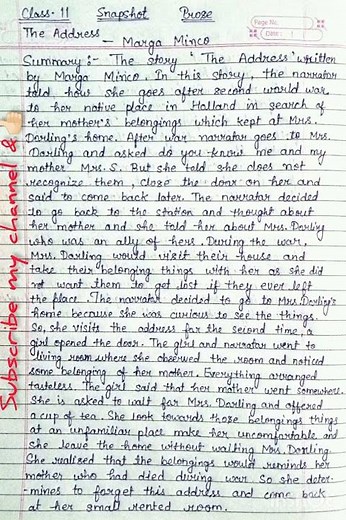 Class - 11 Snapshot Proze
Page No.
Date:
The Address
- Marga Minco
Summary :- The story 'The Address' written
by Marga Minco. In this story, the narrator
told how she goes after second world war
to her native place in Holland in search of
her mother's belongings which kept at Mrs.
Darling's home. After war narrator goes to Mrs.
Darling and asked do you know me and my
mother Mrs. S. But she told she does not
recognize them, close the door on her and
said to come back later. The narrator decided
to go back to the station and thought about
her mother and she told her about Mrs. Darling
who was an ally of hers. During the war,
Mrs. Darling would visit their house and
take their belonging things with her as she did
not want them to get lost if they ever left
the place. The narrator decided to go to Mrs. Darling's
home because she was curious to see the things.
So, she visits the address for the second time, a
girl opened the door. The girl and narrator went to
living room where she observed the room and noticed
some belonging of her mother. Everything arranged
tasteless. The girl said that her mother went somewhere.
She is asked to wait for Mrs. Darling and offered
a cup of tea. She look towards those belongings things
at an unfamiliar place make her uncomfortable and
She leave the home without waiting Mrs. Darling.
She realised that the belongings would reminds her
mother who had died during war. So she deter-
-mines to forget this address and come back
at her small rented room.
Subscribe my channel &